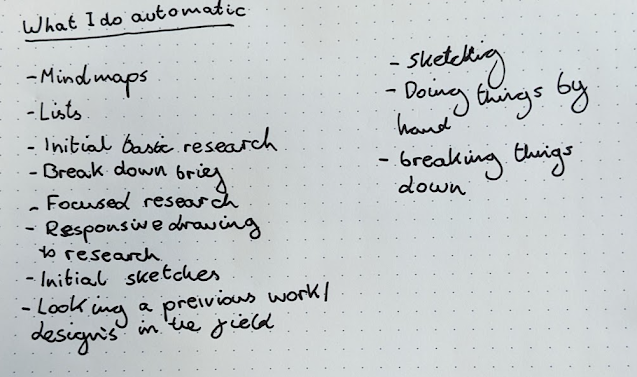 What I do automatic
- Mindmaps
- Lists
- Initial basic research
- Break down brief
- Focused research
- Responsive drawing
to research
- Initial sketches
- Looking a preivious work/
designs in the field
- sketching
- Doing things by
hand
- breaking things
down